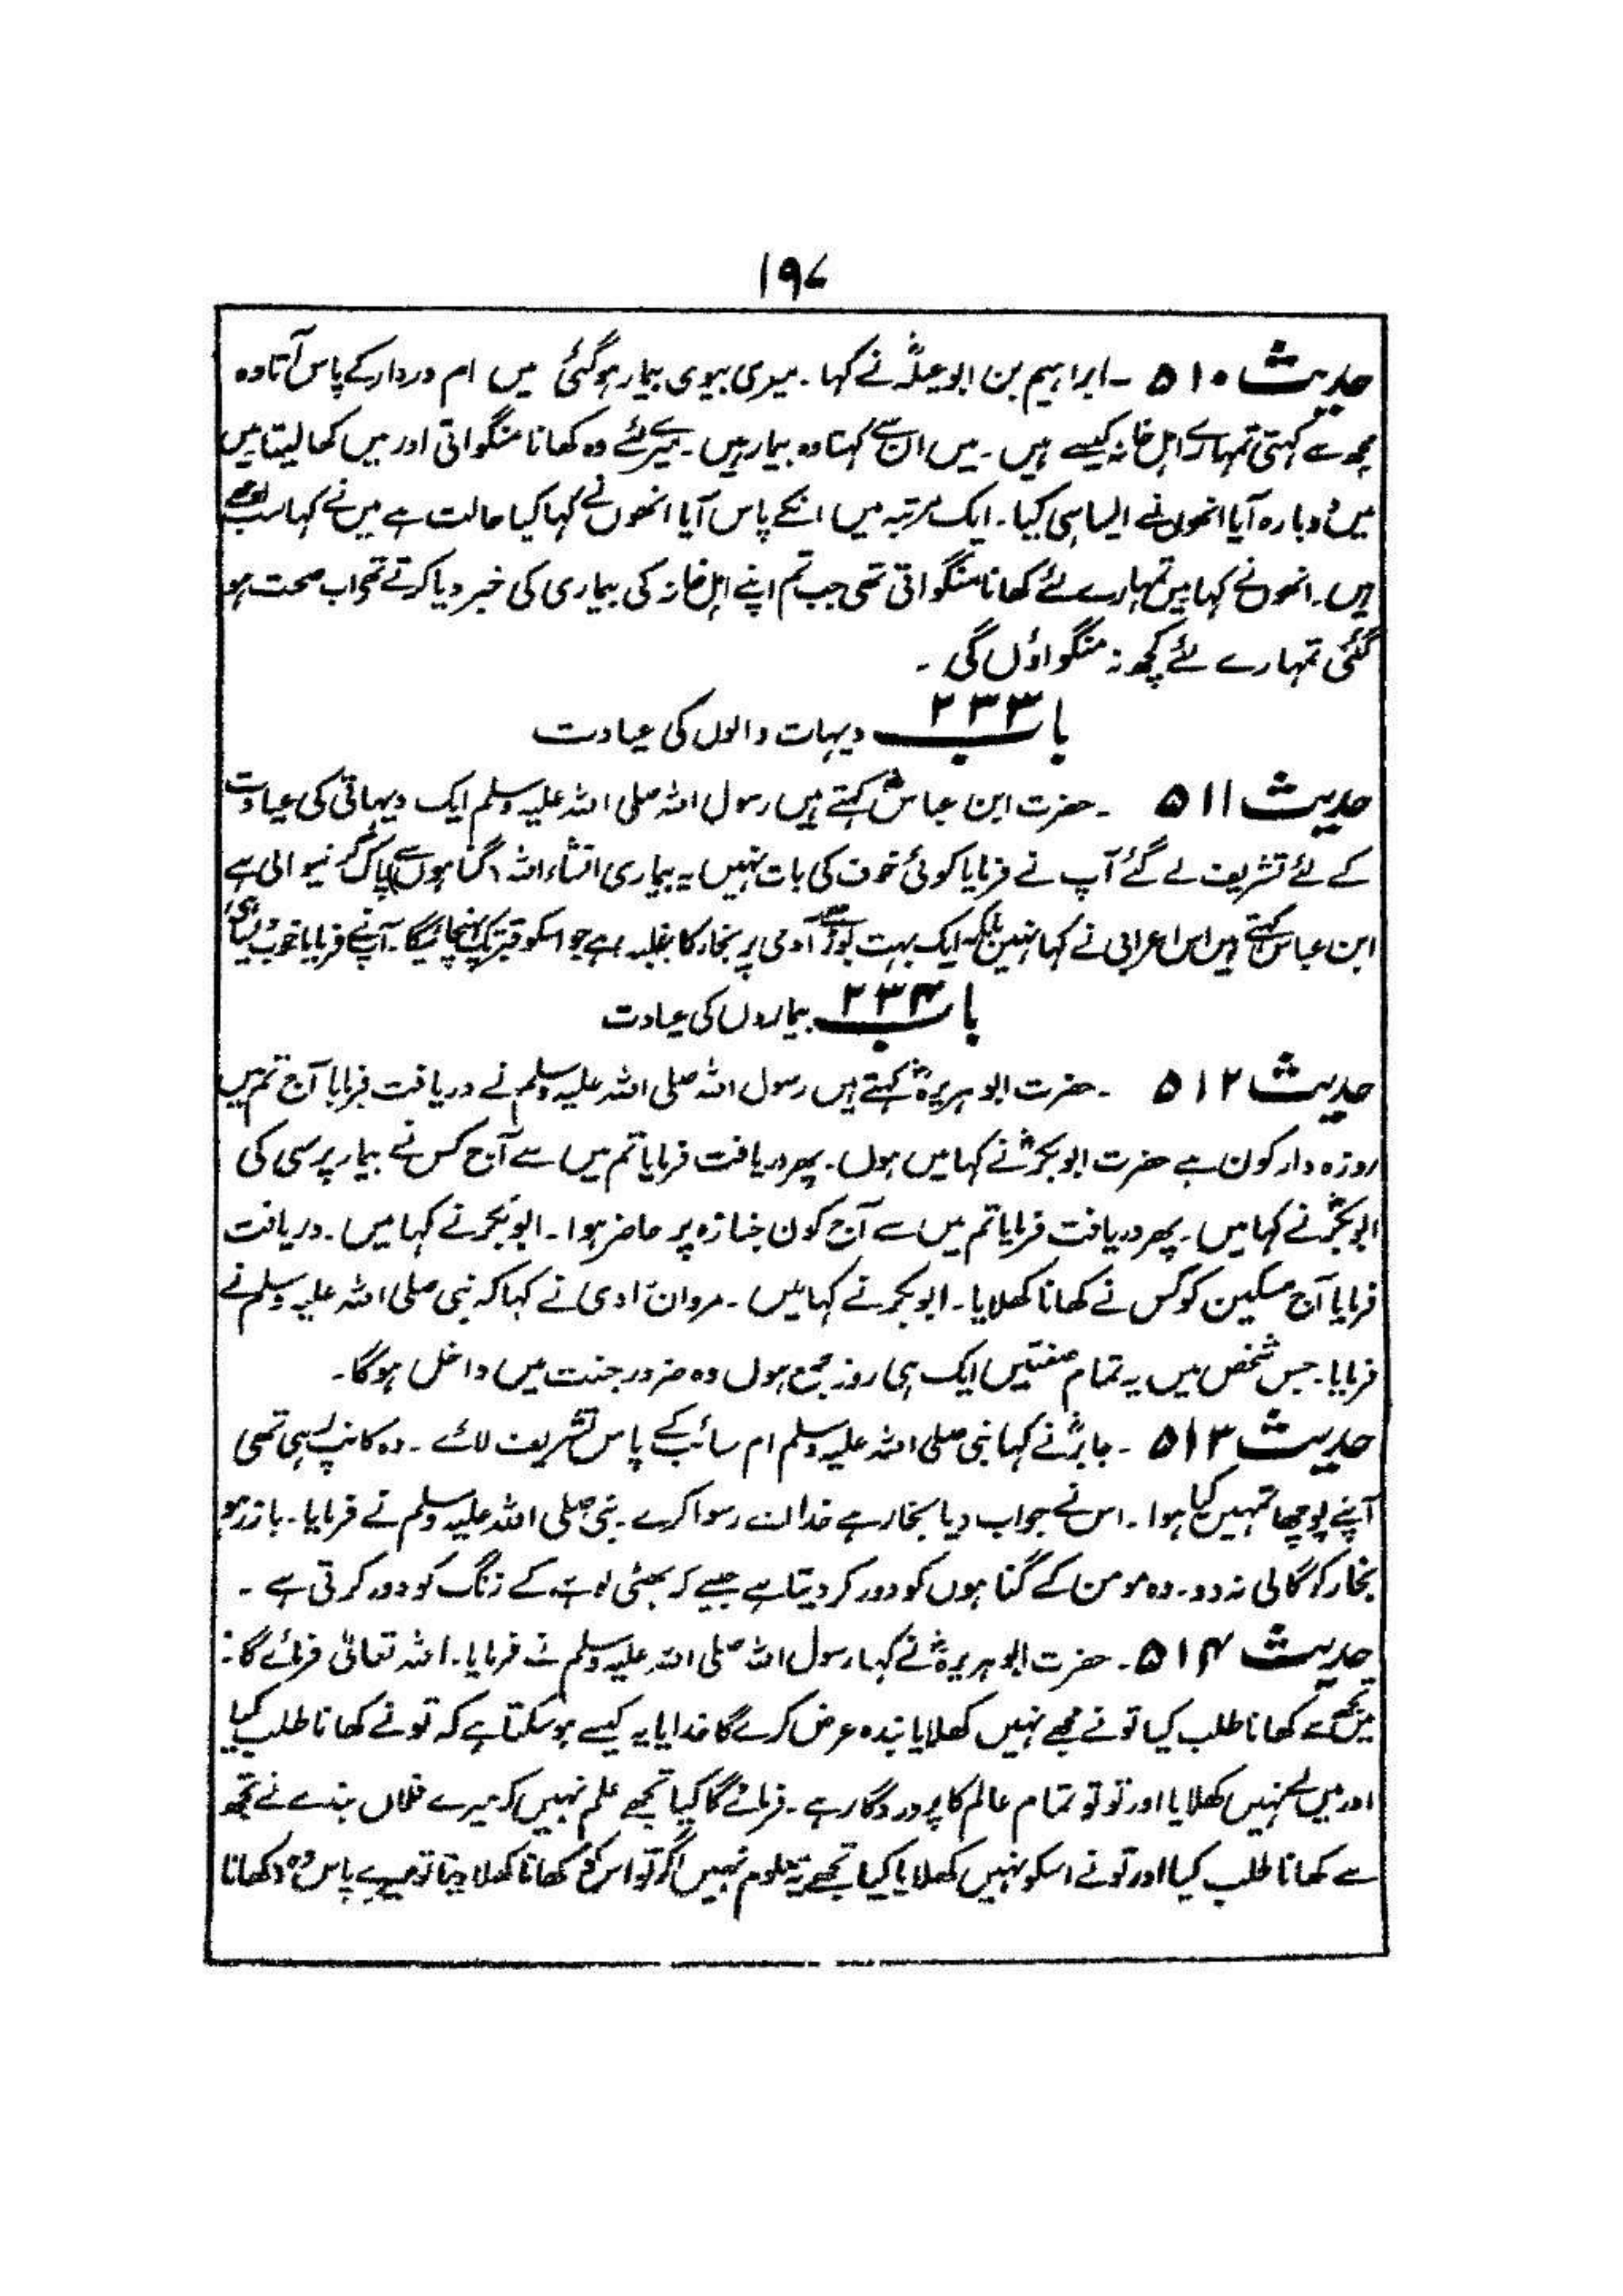 ۱۹۷
حدیث ۵۱۰ ۔ ابراہیم بن ابو عبلہؒ نے کہا ۔ میری بیوی بیمار ہوگئی میں ام دردار کے پاس آتا وہ
مجھ سے کہتی تمہارے اہل خانہ کیسے ہیں ۔ میں ان سے کہتا وہ بیمار ہیں ۔ میرے لئے وہ کھانا منگواتی اور میں کھا لیتا میں
میں دوبارہ آیا انھوں نے ایسا ہی کیا ۔ ایک مرتبہ میں انکے پاس آیا انھوں نے کہا کیا حالت ہے میں نے کہا سب اچھے
ہیں ۔ انھوں نے کہا میں تمہارے لئے کھانا منگواتی تھی جب تم اپنے اہل خانہ کی بیماری کی خبر دیا کرتے تھے اب صحت ہو
گئی تمہارے لئے کچھ نہ منگواؤں گی ۔
باب ۲۳۳ دیہات والوں کی عیادت
حدیث ۵۱۱ ۔ حضرت ابن عباسؓ کہتے ہیں رسول اللہ صلی اللہ علیہ وسلم ایک دیہاتی کی عیادت
کے لئے تشریف لے گئے آپ نے فرمایا کوئی خوف کی بات نہیں یہ بیماری انشاء اللہ گناہوں سے پاک کرنیوالی ہے
ابن عباس کہتے ہیں اس اعرابی نے کہا نہیں بلکہ ایک بہت بوڑھے آدمی پر بخار کا غلبہ ہے جو اسکو قبر تک پہنچائیگا ۔ آپنے فرمایا خوب
باب ۲۳۴ بیماروں کی عیادت
حدیث ۵۱۲ ۔ حضرت ابو ہریرہؓ کہتے ہیں رسول اللہ صلی اللہ علیہ وسلم نے دریافت فرمایا آج تم میں
روزہ دار کون ہے حضرت ابوبکرؓ نے کہا میں ہوں ۔ پھر دریافت فرمایا تم میں سے آج کس نے بیمار پرسی کی
ابوبکرؓ نے کہا میں ۔ پھر دریافت فرمایا تم میں سے آج کون جنازہ پر حاضر ہوا ۔ ابوبکر نے کہا میں ۔ دریافت
فرمایا آج مسکین کو کس نے کھانا کھلایا ۔ ابوبکر نے کہا میں ۔ مروان راوی نے کہا کہ نبی صلی اللہ علیہ وسلم نے
فرمایا ۔ جس شخص میں یہ تمام صفتیں ایک ہی روز جمع ہوں وہ ضرور جنت میں داخل ہوگا ۔
حدیث ۵۱۳ ۔ جابرؓ نے کہا نبی صلی اللہ علیہ وسلم ام سائب کے پاس تشریف لائے ۔ وہ کانپ رہی تھی
آپنے پوچھا تمہیں کیا ہوا ۔ اس نے جواب دیا بخار ہے خدا اسے رسوا کرے ۔ نبی صلی اللہ علیہ وسلم نے فرمایا ۔ باز رہو
بخار کو گالی نہ دو ۔ وہ مومن کے گناہوں کو دور کر دیتا ہے جیسے کہ بھٹی لوہے کے زنگ کو دور کرتی ہے ۔
حدیث ۵۱۴ ۔ حضرت ابو ہریرہؓ نے کہا رسول اللہ صلی اللہ علیہ وسلم نے فرمایا ۔ اللہ تعالیٰ فرمائے گا :
میں تجھ سے کھانا طلب کیا تو نے مجھے نہیں کھلایا بندہ عرض کرے گا خدایا یہ کیسے ہو سکتا ہے کہ تو نے کھانا طلب کیا
اور میں نے نہیں کھلایا اور تو تو تمام عالم کا پروردگار ہے ۔ فرمائے گا کیا تجھے علم نہیں کہ میرے فلاں بندے نے تجھ
سے کھانا طلب کیا اور تو نے اسکو نہیں کھلایا کیا تجھے یہ معلوم نہیں اگر تو اس کو کھانا کھلا دیتا تو میرے پاس وہ کھانا